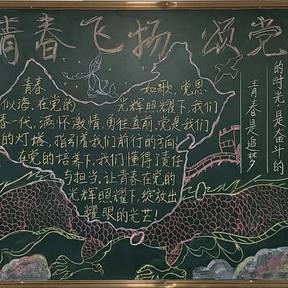 青春飞扬 颂党
青春 如歌,党恩
似海,在党的 光辉照耀下,我们
春一代,满怀激情,勇往直前,党是我们
的灯塔,指引着我们前行的方向,
在党的培养下,我们懂得了责任
与担当,让青春在党的
光辉照耀下,绽放出
耀眼的光芒!
的时光是奋斗的
青春是追梦